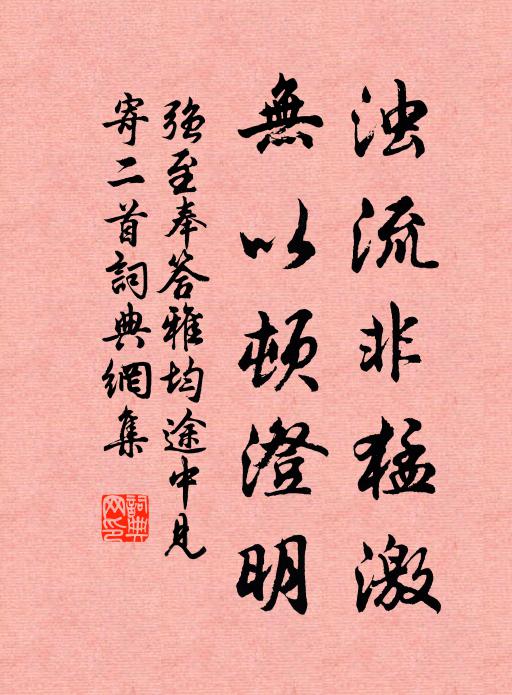 浊流非猛激
無以頓澄明
强至奉答雅均途中見
寄二首詞典網集
詞典网印